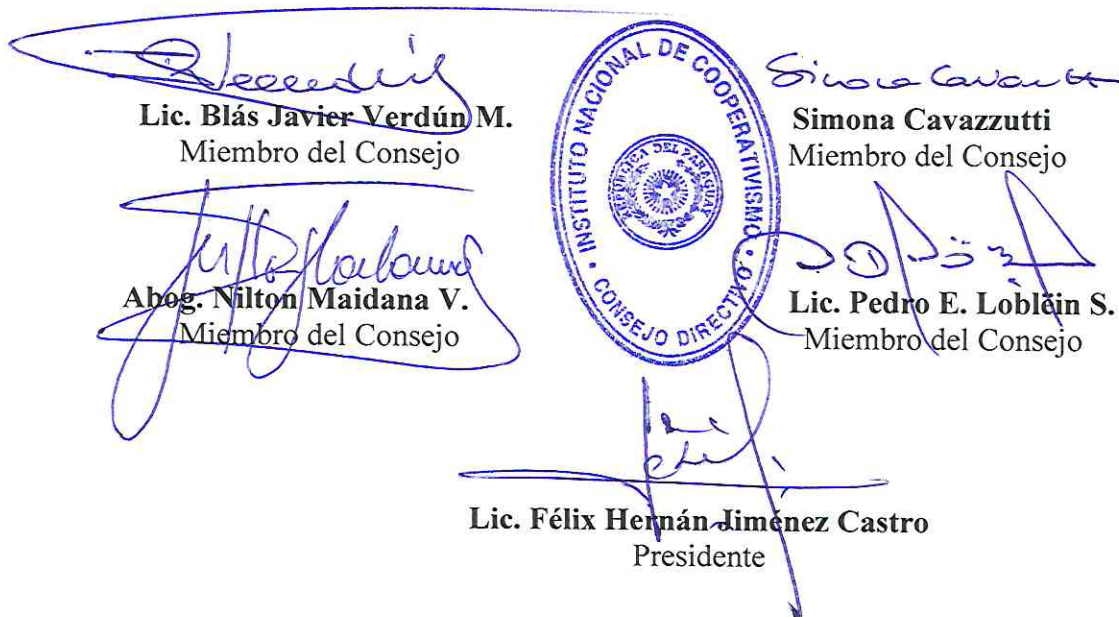 Lic. Blás Javier Verdún M.
Miembro del Consejo
Simona Cavazzutti
Miembro del Consejo
INSTITUTO NACIONAL DE COOPERATIVISMO
CONSEJO DIRECTIVO
REPÚBLICA DEL PARAGUAY
Abog. Nilton Maidana V.
Miembro del Consejo
Lic. Pedro E. Loblein S.
Miembro del Consejo
Lic. Félix Hernán Jiménez Castro
Presidente